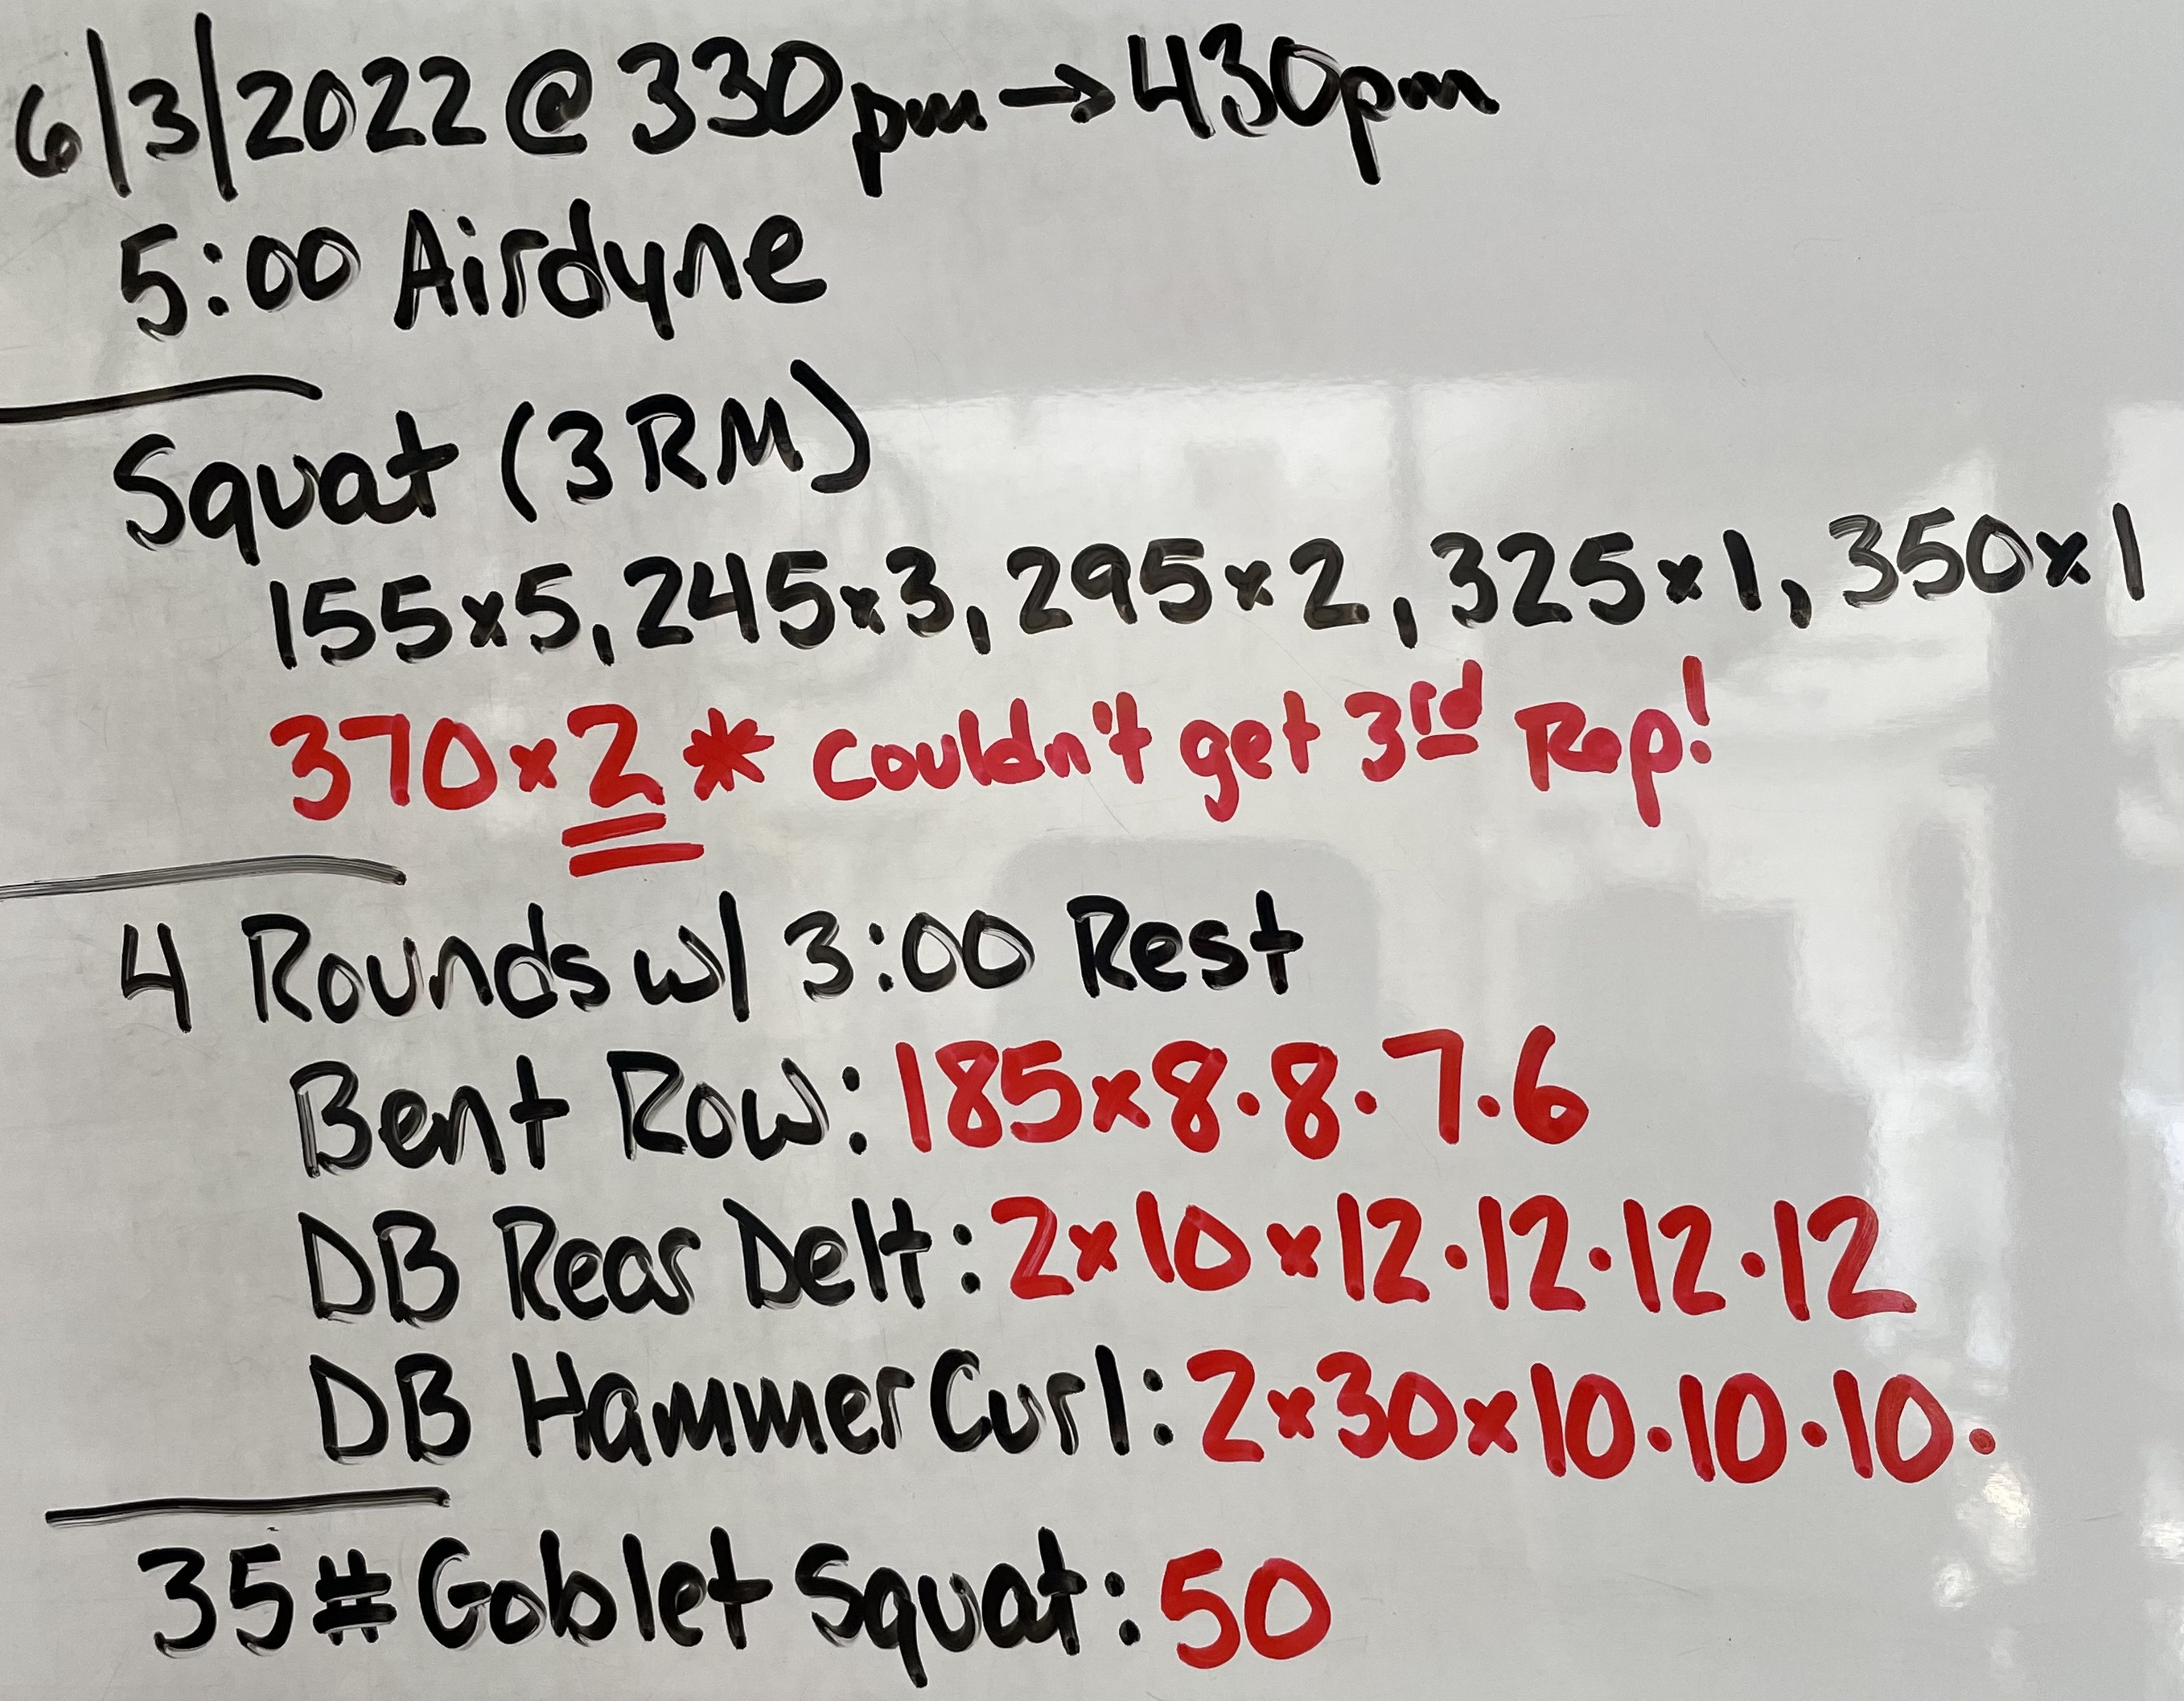 6/3/2022 @ 330pm → 430pm
5:00 Airdyne
Squat (3RM)
155x5, 245x3, 295x2, 325x1, 350x1
370x2 * Couldn't get 3rd Rep!
4 Rounds w/ 3:00 Rest
Bent Row: 185x8·8·7·6
DB Rear Delt: 2x10x12·12·12·12
DB Hammer Curl: 2x30x10·10·10·
35# Goblet Squat: 50